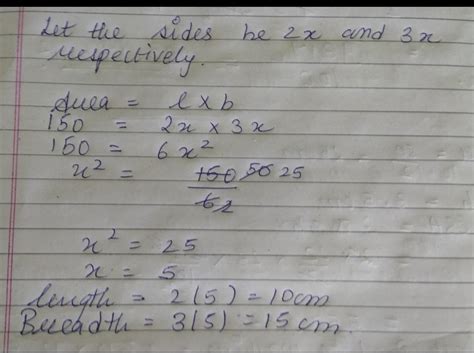 Let the sides be 2x and 3x
respectively.
Area = l x b
150 = 2x × 3x
150 = 6x²
x² = 150 50 25
6 2
x² = 25
x = 5
Length = 2(5) = 10cm
Breadth = 3(5) = 15 cm.